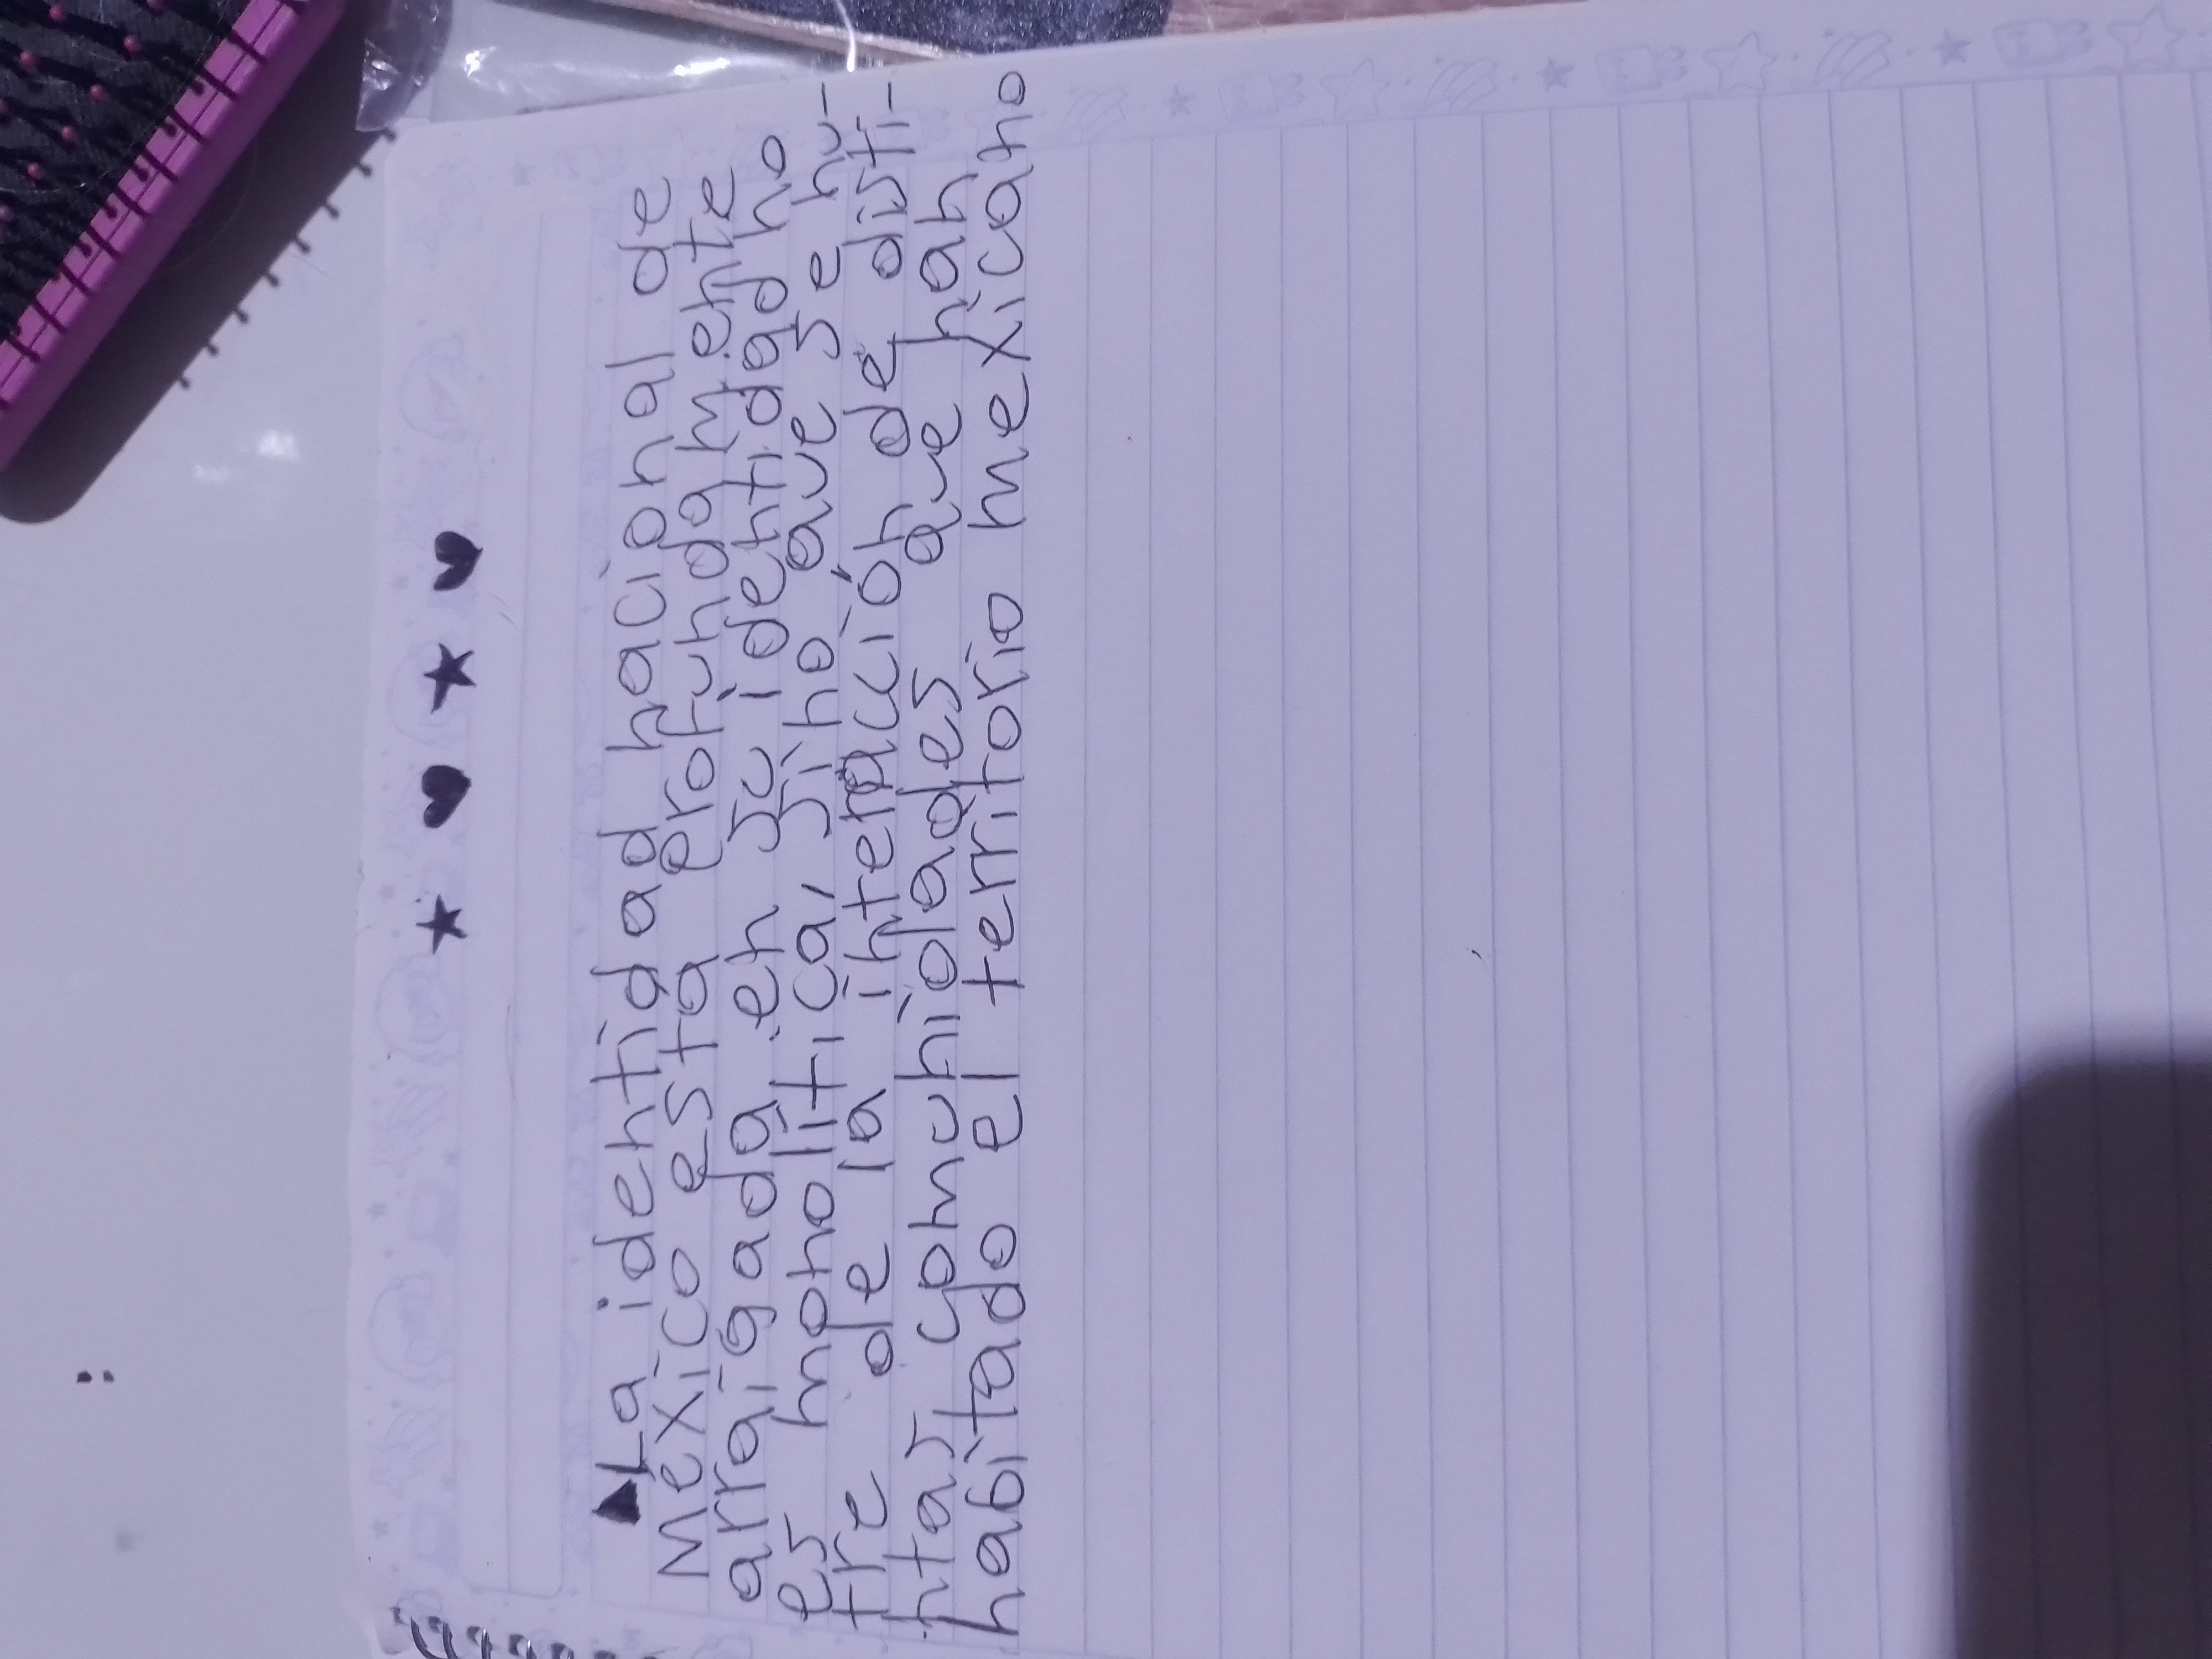 La identidad nacional de
Mexico esta profundamente
arraigada en su identidad no
es monolitica, sino que se nu-
tre de la interacción de disti-
ntas comunidades que han
habitado el territorio mexicano